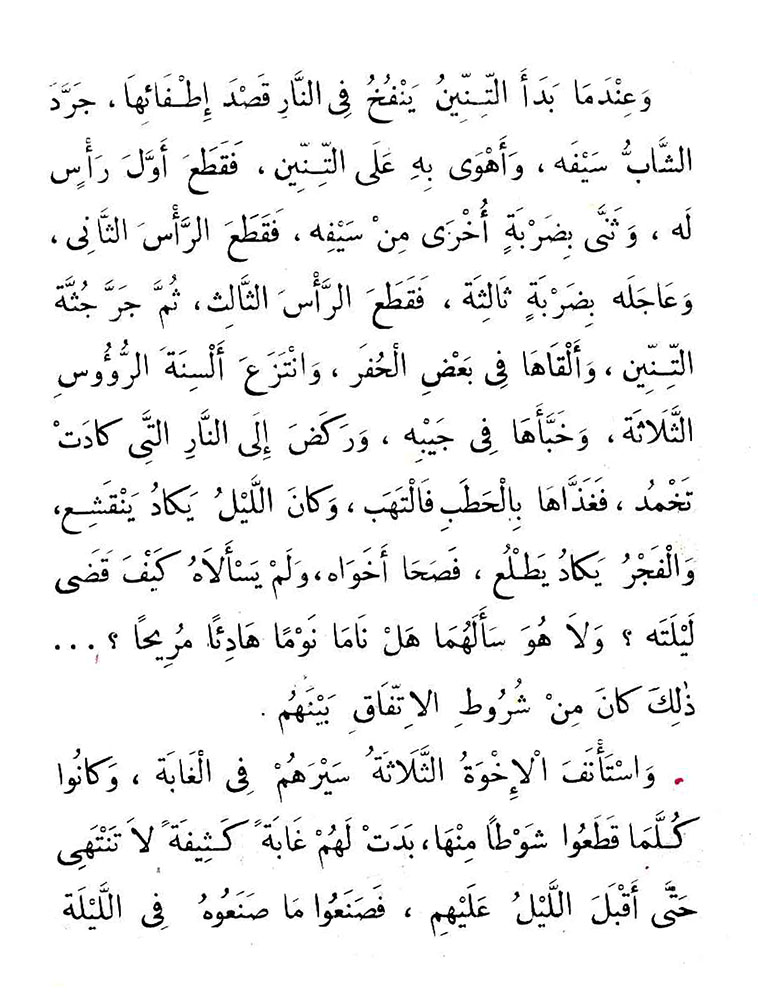 وَعِنْدَمَا بَدَأَ التِّنِّينُ يَنْفُخُ فِى النَّارِ قَصْدَ إِطْفَائِهَا ، جَرَّدَ
الشَّابُّ سَيْفَه ، وَأَهْوَى بِهِ عَلَى التِّنِّين ، فَقَطَعَ أَوَّلَ رَأْسٍ
لَه ، وَثَنَّى بِضَرْبَةٍ أُخْرَى مِنْ سَيْفِه ، فَقَطَعَ الرَّأْسَ الثَّانِى ،
وَعَاجَلَه بِضَرْبَةٍ ثَالِثَة ، فَقَطَعَ الرَّأْسَ الثَّالِث ، ثُمَّ جَرَّ جُثَّة
التِّنِّين ، وَأَلْقَاهَا فِى بَعْضِ الْحُفَر ، وَانْتَزَعَ أَلْسِنَةَ الرُّؤُوسِ
الثَّلَاثَة ، وَخَبَّأَهَا فِى جَيْبِه ، وَرَكَضَ إِلَى النَّارِ الَّتِى كَادَتْ
تَخْمُد ، فَغَذَّاهَا بِالْحَطَبِ فَالْتَهَب ، وَكَانَ اللَّيْلُ يَكَادُ يَنْقَشِع ،
وَالْفَجْرُ يَكَادُ يَطْلُع ، فَصَحَا أَخَوَاه ، وَلَمْ يَسْأَلَاهُ كَيْفَ قَضَى
لَيْلَتَه ؟ وَلَا هُوَ سَأَلَهُمَا هَلْ نَامَا نَوْمًا هَادِئًا مُرِيحًا ؟ ...
ذٰلِكَ كَانَ مِنْ شُرُوطِ الِاتِّفَاقِ بَيْنَهُم .
وَاسْتَأْنَفَ الْإِخْوَةُ الثَّلَاثَةُ سَيْرَهُمْ فِى الْغَابَة ، وَكَانُوا
كُلَّمَا قَطَعُوا شَوْطاً مِنْهَا ، بَدَتْ لَهُمْ غَابَةً كَثِيفَةً لَا تَنْتَهِى
حَتَّى أَقْبَلَ اللَّيْلُ عَلَيْهِم ، فَصَنَعُوا مَا صَنَعُوهُ فِى اللَّيْلَة